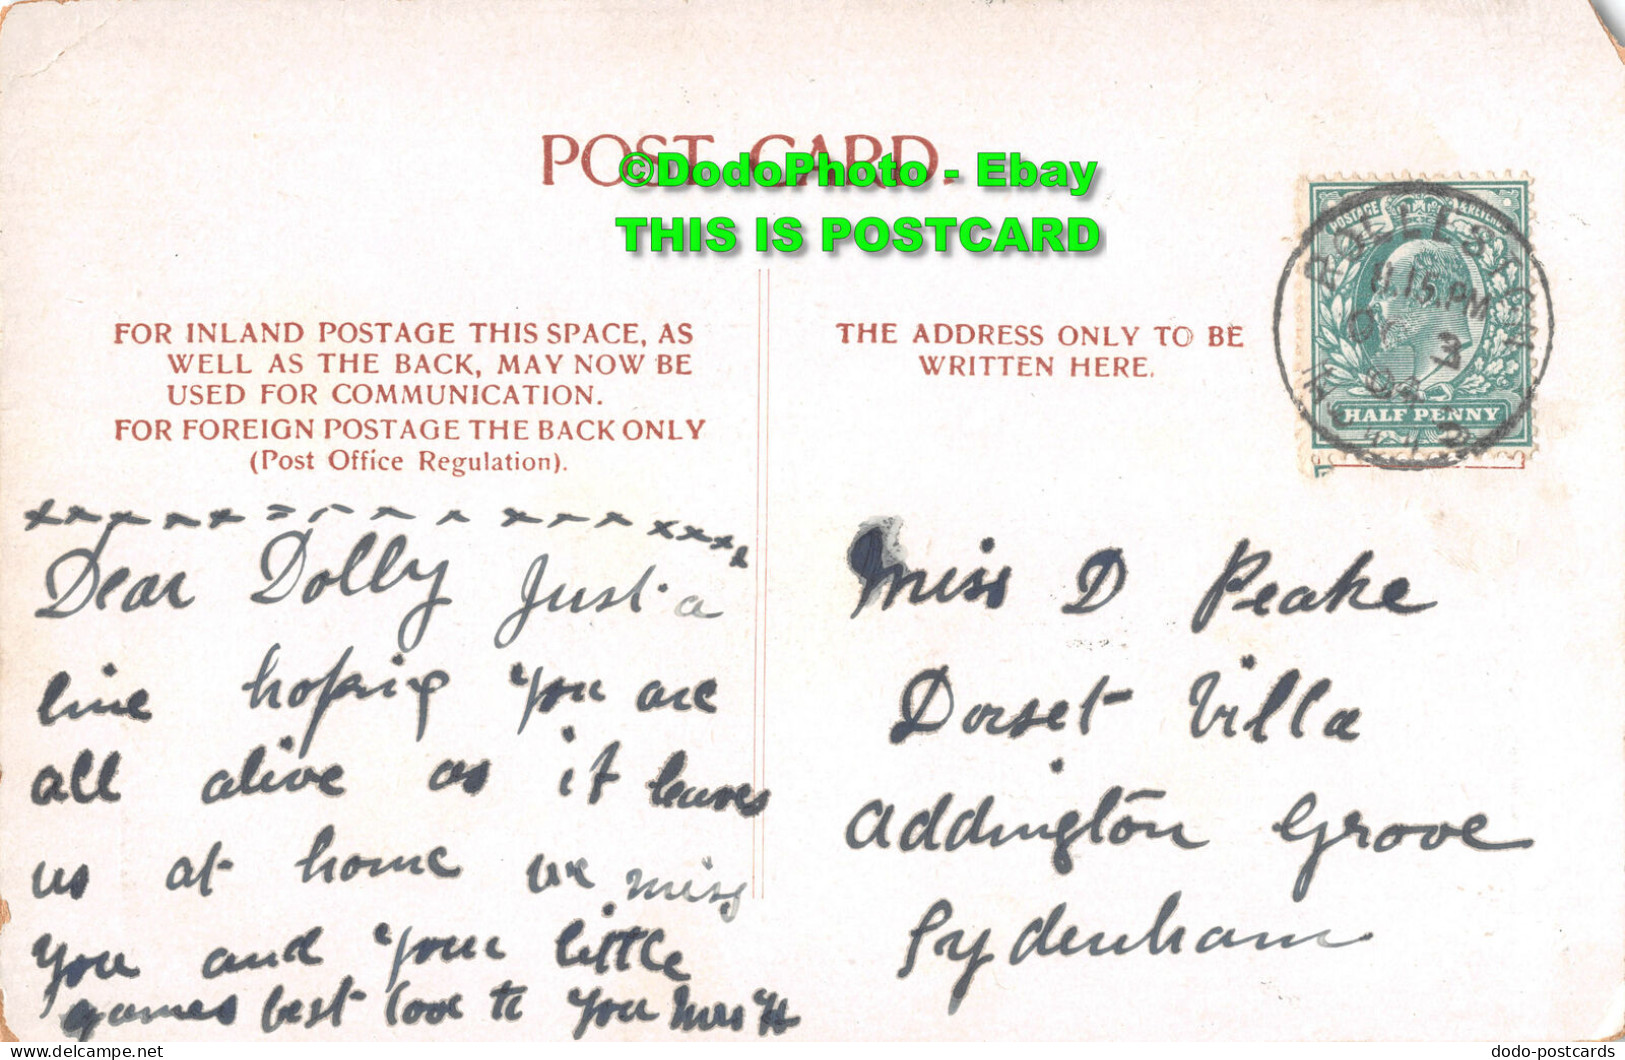 POST CARD.
©DodoPhoto - Ebay
THIS IS POSTCARD
FOR INLAND POSTAGE THIS SPACE, AS
WELL AS THE BACK, MAY NOW BE
USED FOR COMMUNICATION.
FOR FOREIGN POSTAGE THE BACK ONLY
(Post Office Regulation).
THE ADDRESS ONLY TO BE
WRITTEN HERE.
POSTAGE & REVENUE
HALF PENNY
11.15 PM
OC 3
04
Dear Dolly Just a
line hoping you are
all alive as it leaves
us at home we miss
you and your little
games best love to you Mrs H
Miss D Peake
Dorset Villa
Addington Grove
Sydenham
dodo-postcards
delcampe.net